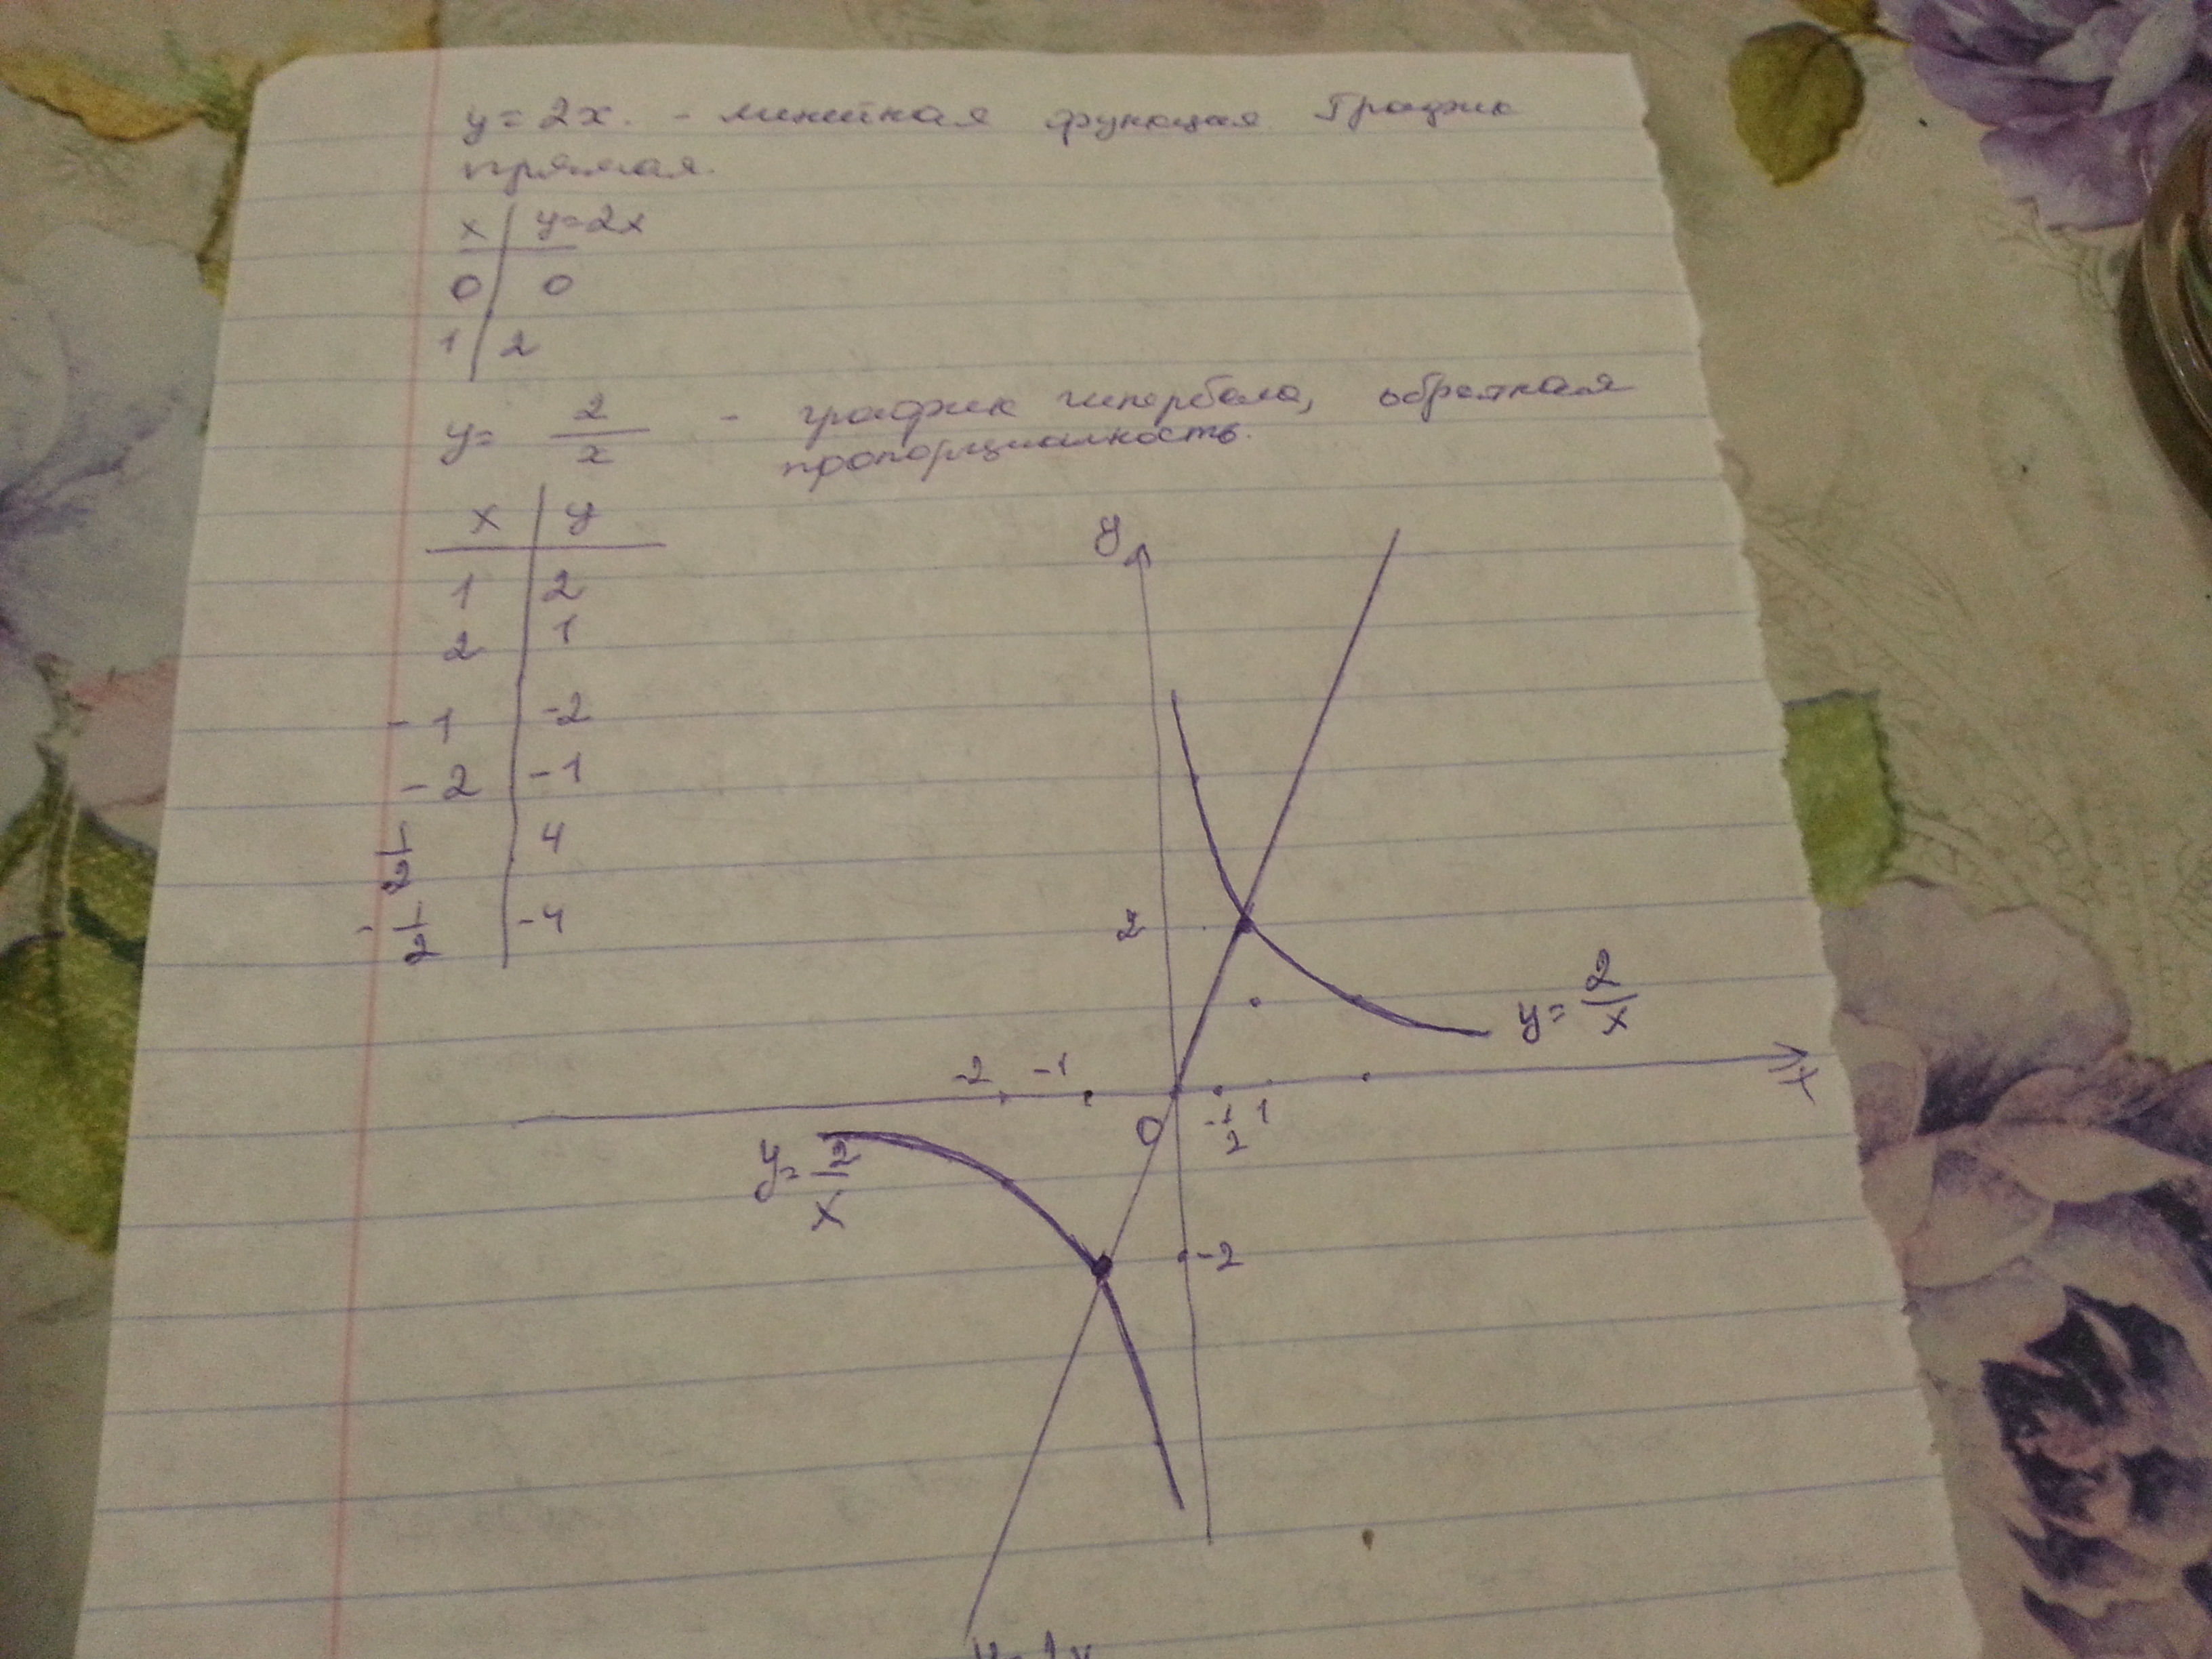 y = 2x. - линейная функция График
прямая.
x | y=2x
0 | 0
1 | 2
y = 2/x - график гипербола, обратная
пропорциалность.
x | y
1 | 2
2 | 1
-1 | -2
-2 | -1
1/2 | 4
-1/2 | -4
y
2
y = 2/x
-2 -1
x
0 1/2 1
y = 2/x
-2
y=2x